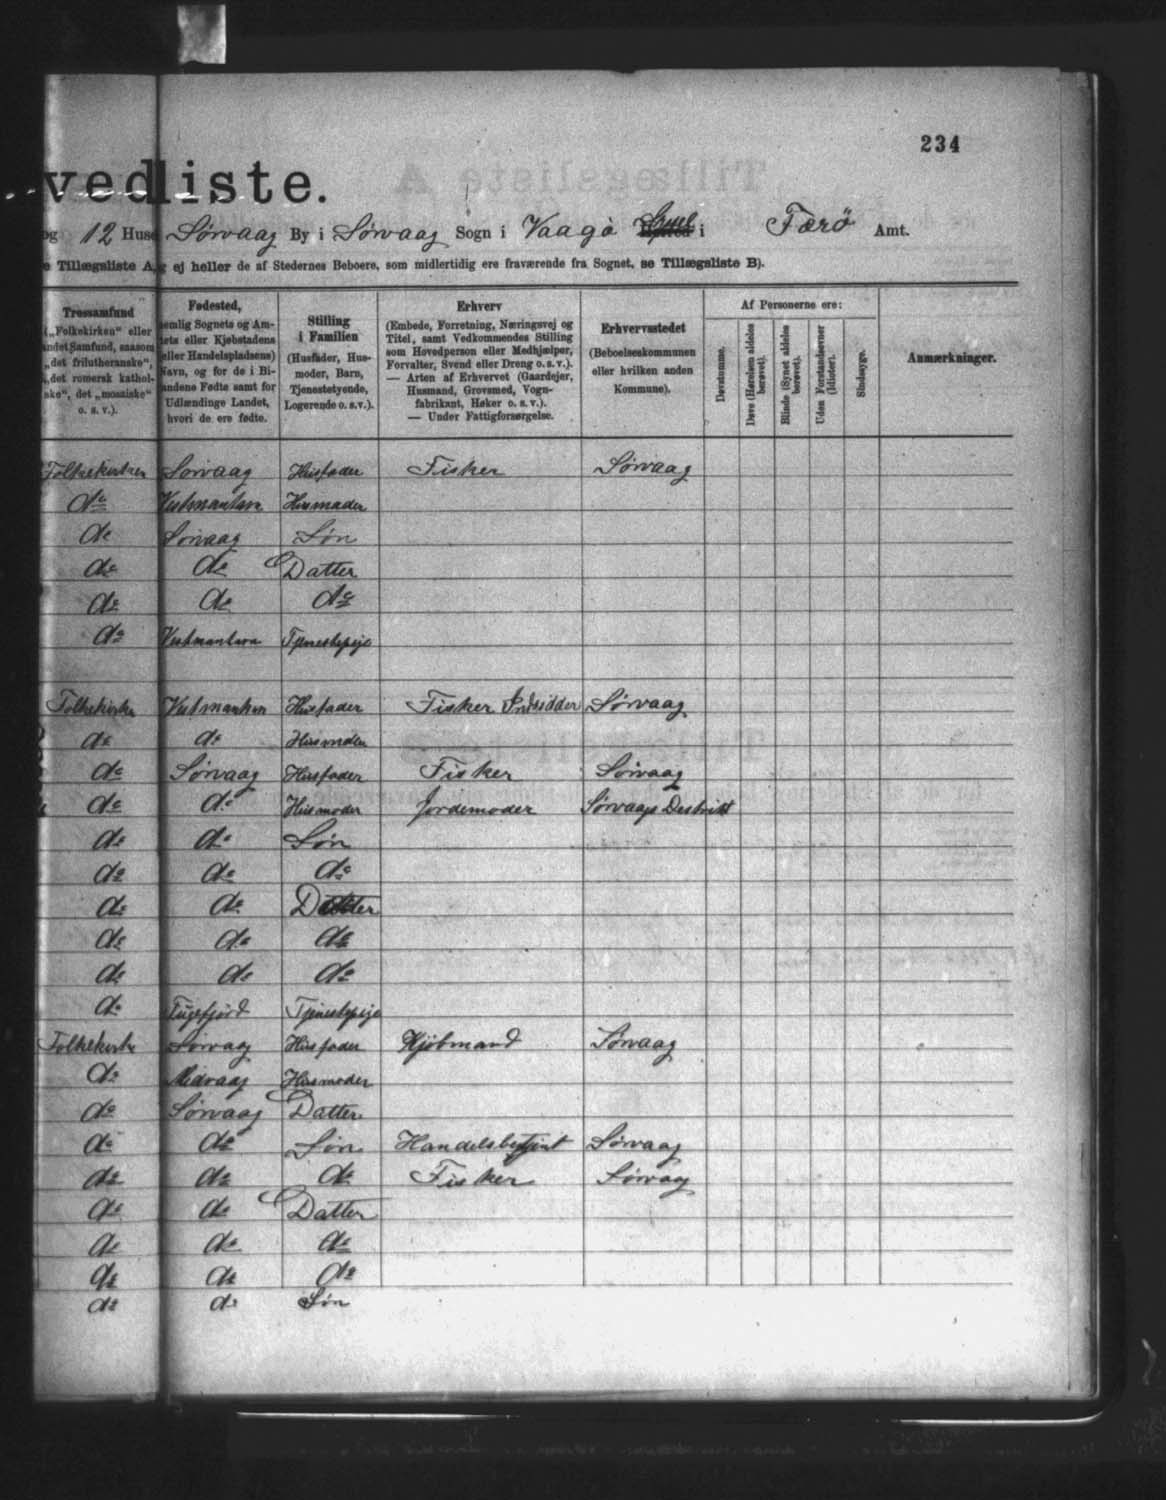 234
vedliste.
og 12 Huse Sørvaag By i Sørvaag Sogn i Vaagø Syssel i Færø Amt.
e Tillægsliste A, ej heller de af Stedernes Beboere, som midlertidig ere fraværende fra Sognet, se Tillægsliste B).
Trossamfund
(„Folkekirken“ eller
andet Samfund, saasom
„det frilutheranske“,
„det romersk kathol-
ske“, det „mosaiske“
o. s. v.).
Fødested,
nemlig Sognets og Am-
tets eller Kjøbstadens
(eller Handelspladsens)
Navn, og for de i Bi-
landene Fødte samt for
Udlændinge Landet,
hvori de ere fødte.
Stilling
i Familien
(Husfader, Hus-
moder, Barn,
Tjenestetyende,
Logerende o. s. v.).
Erhverv
(Embede, Forretning, Næringsvej og
Titel, samt Vedkommendes Stilling
som Hovedperson eller Medhjælper,
Forvalter, Svend eller Dreng o. s. v.).
— Arten af Erhvervet (Gaardejer,
Husmand, Grovsmed, Vogn-
fabrikant, Høker o. s. v.).
— Under Fattigforsørgelse.
Erhvervsstedet
(Beboelseskommunen
eller hvilken anden
Kommune).
Af Personerne ere:
Døvstumme.
Døve (Hørelsen aldeles
berøvet).
Blinde (Synet aldeles
berøvet).
Uden Forstandsevner
(Idioter).
Sindssyge.
Anmærkninger.
Folkekirken Sørvaag Husfader Fisker Sørvaag
do Vestmanhavn Husmoder
do Sørvaag Søn
do do Datter
do do do
do Vestmanhavn Tjenestepige
Folkekirke Vestmanhavn Husfader Fisker Indsidder Sørvaag
do do Husmoder
do Sørvaag Husfader Fisker Sørvaag
do do Husmoder Jordemoder Sørvaags Destrikt
do do Søn
do do do
do do Datter
do do do
do do do
do Fuglefjord Tjenestepige
Folkekirke Sørvaag Husfader Kjøbmand Sørvaag
do Midvaag Husmoder
do Sørvaag Datter
do do Søn Handelsbetjent Sørvaag
do do do Fisker Sørvaag
do do Datter
do do do
do do do
do do Søn